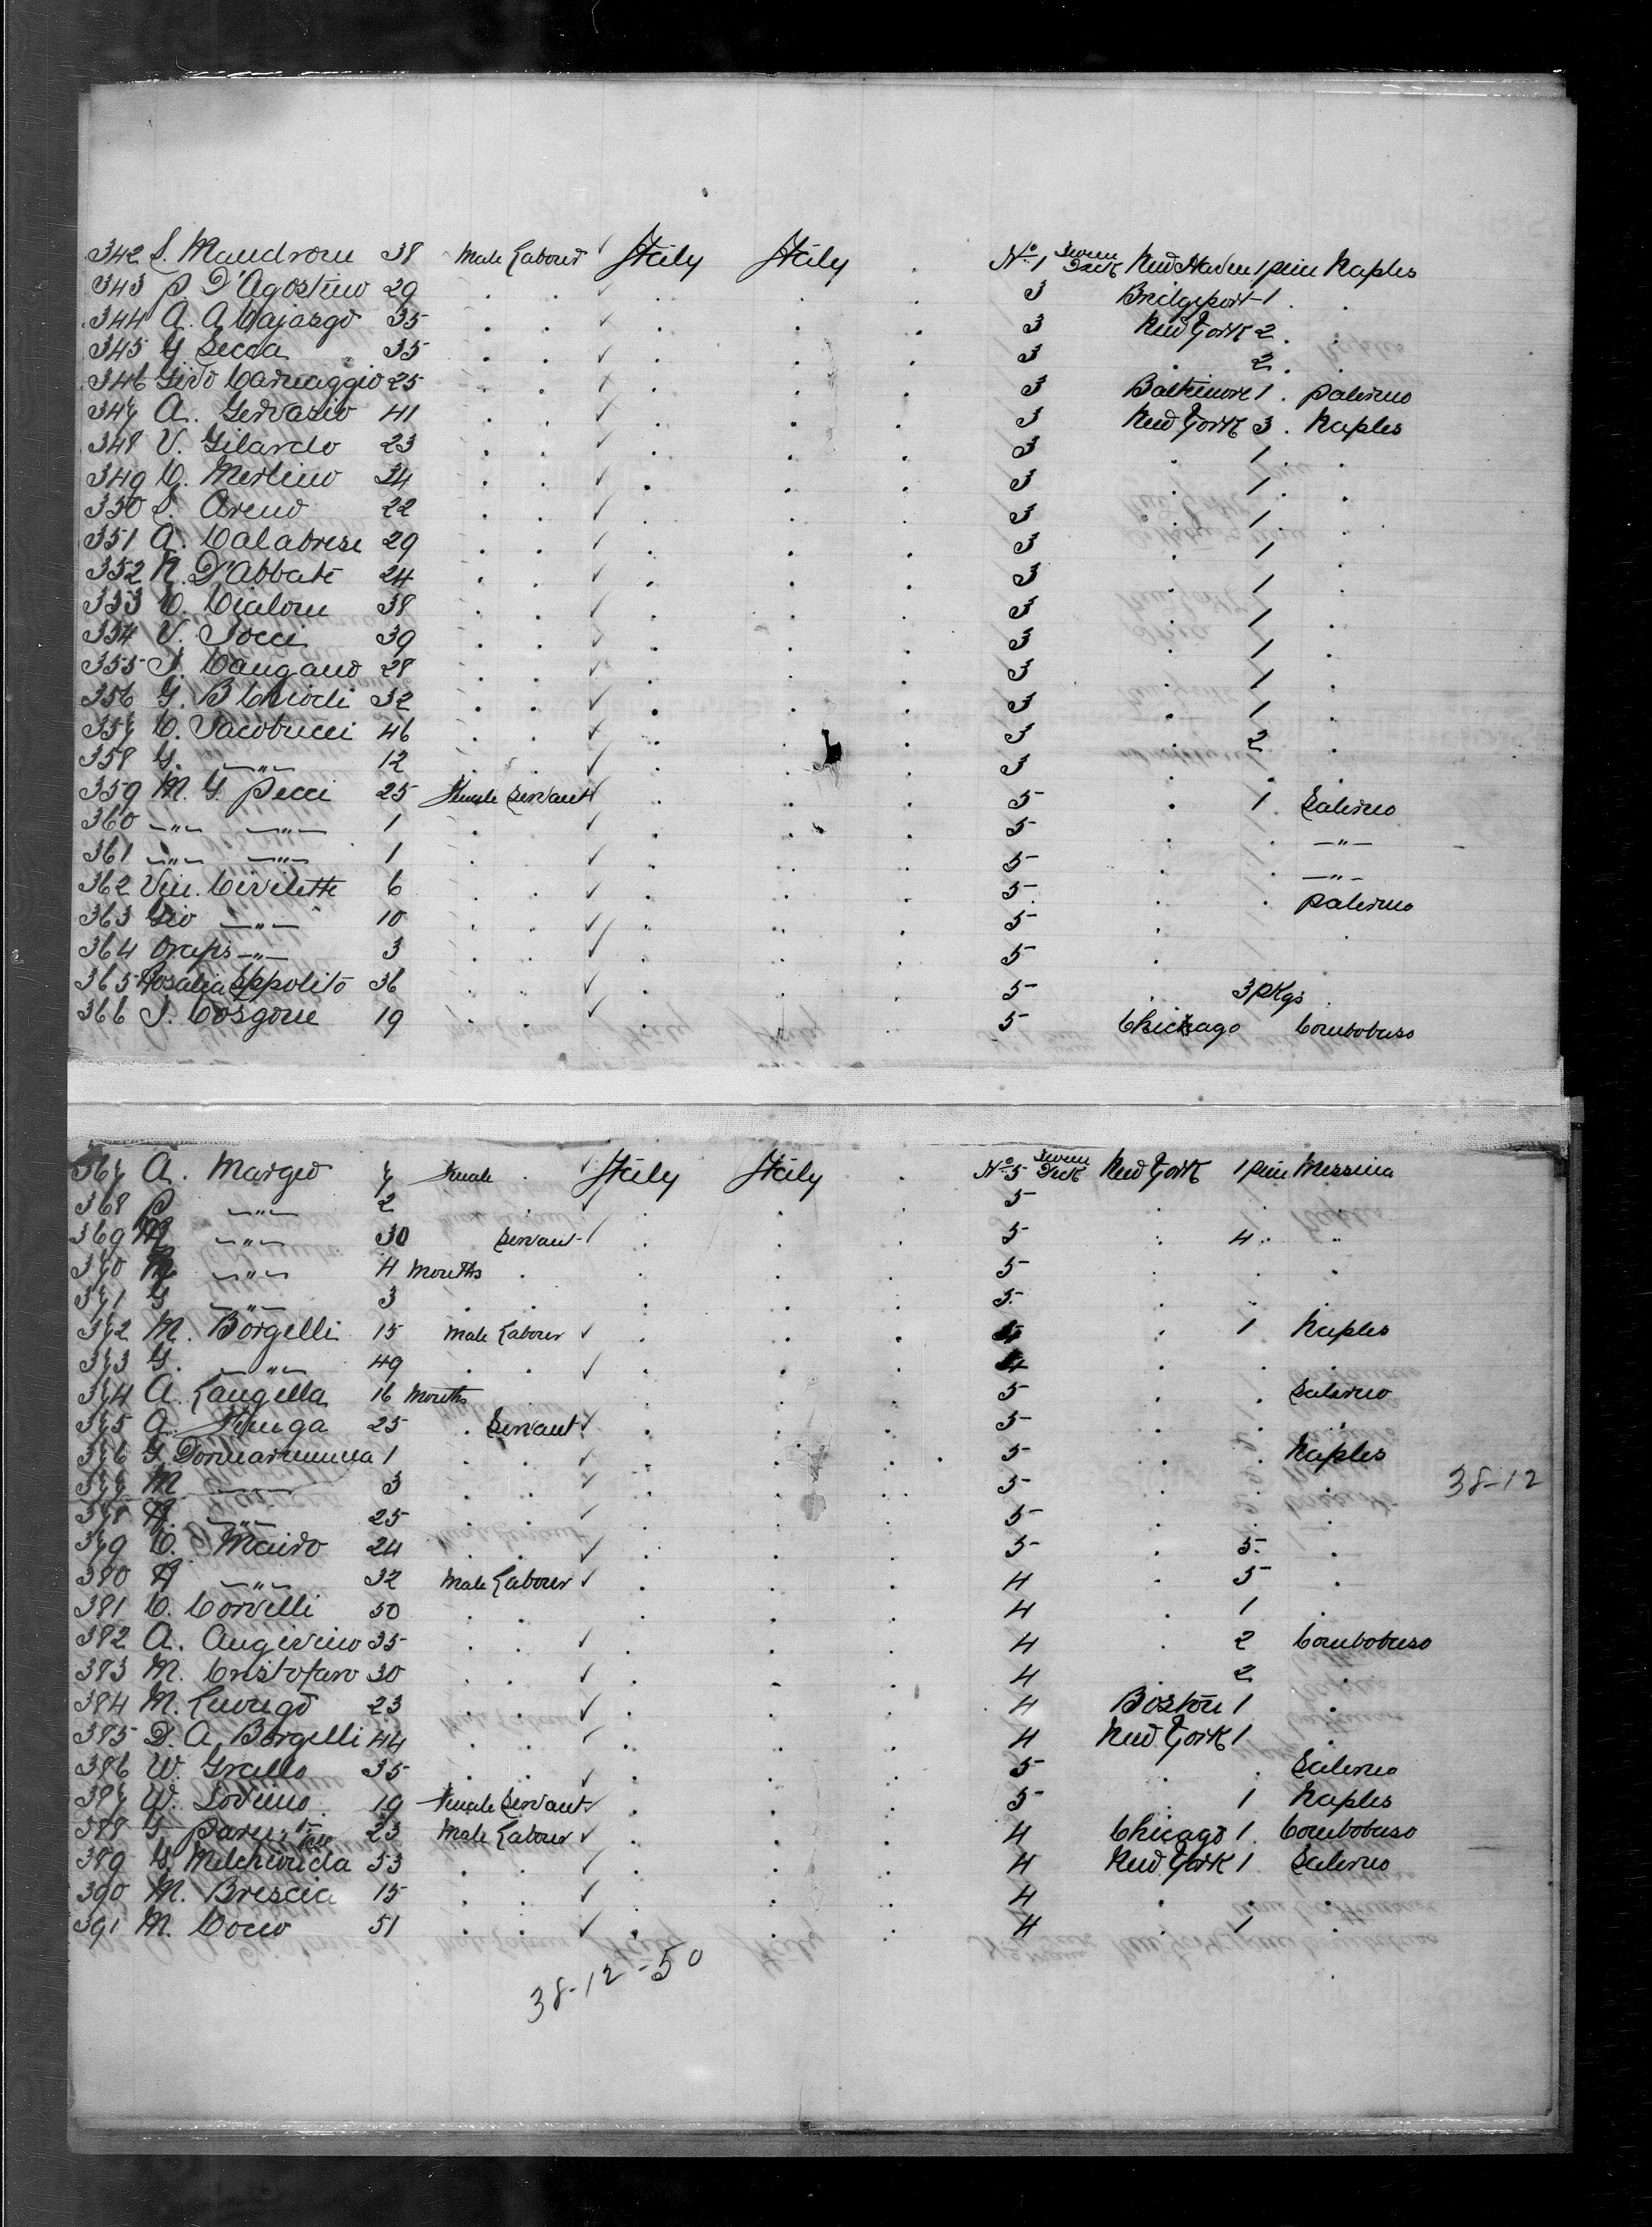 342 S. Mandrone 38 Male Labour ✓ Italy Italy . No 1 Tween Deck New Haven 1 piece Naples
343 P. D'Agostino 29 . . ✓ . . . 3 Bridgeport 1 . .
344 A. A. Cajasgo 35 . . ✓ . . . 3 New York 2 . .
345 G. Secca 35 . . ✓ . . . 3 . 2 . .
346 Giro Carnaggio 25 . . ✓ . . . 3 Baltimore 1 . Palermo
347 A. Gervasio 41 . . ✓ . . . 3 New York 3 . Naples
348 V. Gilardo 23 . . ✓ . . . 3 . 1 . .
349 C. Merlino 34 . . ✓ . . . 3 . 1 . .
350 S. Areno 22 . . ✓ . . . 3 . 1 . .
351 A. Calabrese 29 . . ✓ . . . 3 . 1 .
352 N. D'Abbate 24 . . ✓ . . . 3 . 1 .
353 C. Cialone 38 . . ✓ . . . 3 . 1 .
354 V. Socci 39 . . ✓ . . . 3 . 1 .
355 S. Cangano 28 . . ✓ . . . 3 . 1 .
356 G. B Chiodi 32 . . ✓ . . . 3 . 1 .
357 C. Jacobucci 46 . . ✓ . . . 3 . 2 .
358 G. —"— 12 . . ✓ . . . 3 . . .
359 M. G. Pecci 25 Female Servant ✓ . . . 5 . 1 . Salerno
360 —"— —"— 1 . . ✓ . . . 5 . . —"—
361 —"— —"— 1 . . ✓ . . . 5 . . —"—
362 Vin. Civilette 6 . . ✓ . . . 5 . . Palermo
363 Gio —"— 10 . . ✓ . . . 5 . .
364 —"— 3 . . ✓ . . . 5 .
365 Rosalia Ippolito 36 . . ✓ . . . 5 . 3 pkgs .
366 S. Cosgone 19 . . ✓ . . . 5 Chickago Combobaso
367 A. Margio 7 Female . ✓ Italy Italy . No 5 Tween Deck New York 1 piece Messina
368 P —"— 2 . ✓ . . . 5 . . .
369 —"— 30 Servant ✓ . . . 5 . 4 . "
370 —"— 4 Months . . . . 5 . . .
371 G —"— 3 . . . . . 5 . . .
372 M. Borgelli 15 Male Labour ✓ . . . 4 . 1 Naples
373 G. —"— 49 . . ✓ . . . 4 . . .
374 A. Langella 16 Months . . . 5 . . Salerno
375 A. 25 . Servant ✓ . . . 5 . . .
376 G. Dormarumma 1 . . ✓ . . . 5 . . Naples
377 M —— 3 . . ✓ . . . 5 . . . 38-12
378 —"— 25 . . ✓ . . . 5 . . .
379 C. Mauro 24 . . ✓ . . . 5 . 5 .
380 —"— 32 Male Labour ✓ . . . 4 . 5 .
381 C. Corvelli 50 . . . . . 4 . 1 .
382 A. Angivino 35 . . ✓ . . . 4 . 2 Combobaso
383 M. Cristofaro 30 . . ✓ . . . 4 . 2 .
384 M. 23 . . ✓ . . . 4 Boston 1 .
385 D. A. Borgelli 44 . . ✓ . . . 4 New York 1
386 W. Grallo 35 . . ✓ . . . 5 . . Salerno
387 W. 19 Female Servant ✓ . . . 5 . 1 Naples
388 G 23 Male Labour ✓ . . . 4 Chicago 1 . Combobaso
389 G. 53 . . ✓ . . . 4 New York 1 Salerno
390 M. Brescia 15 . . ✓ . . . 4 . . .
391 M. Cocco 51 . . ✓ . . . 4 . 1 .
38-12-50